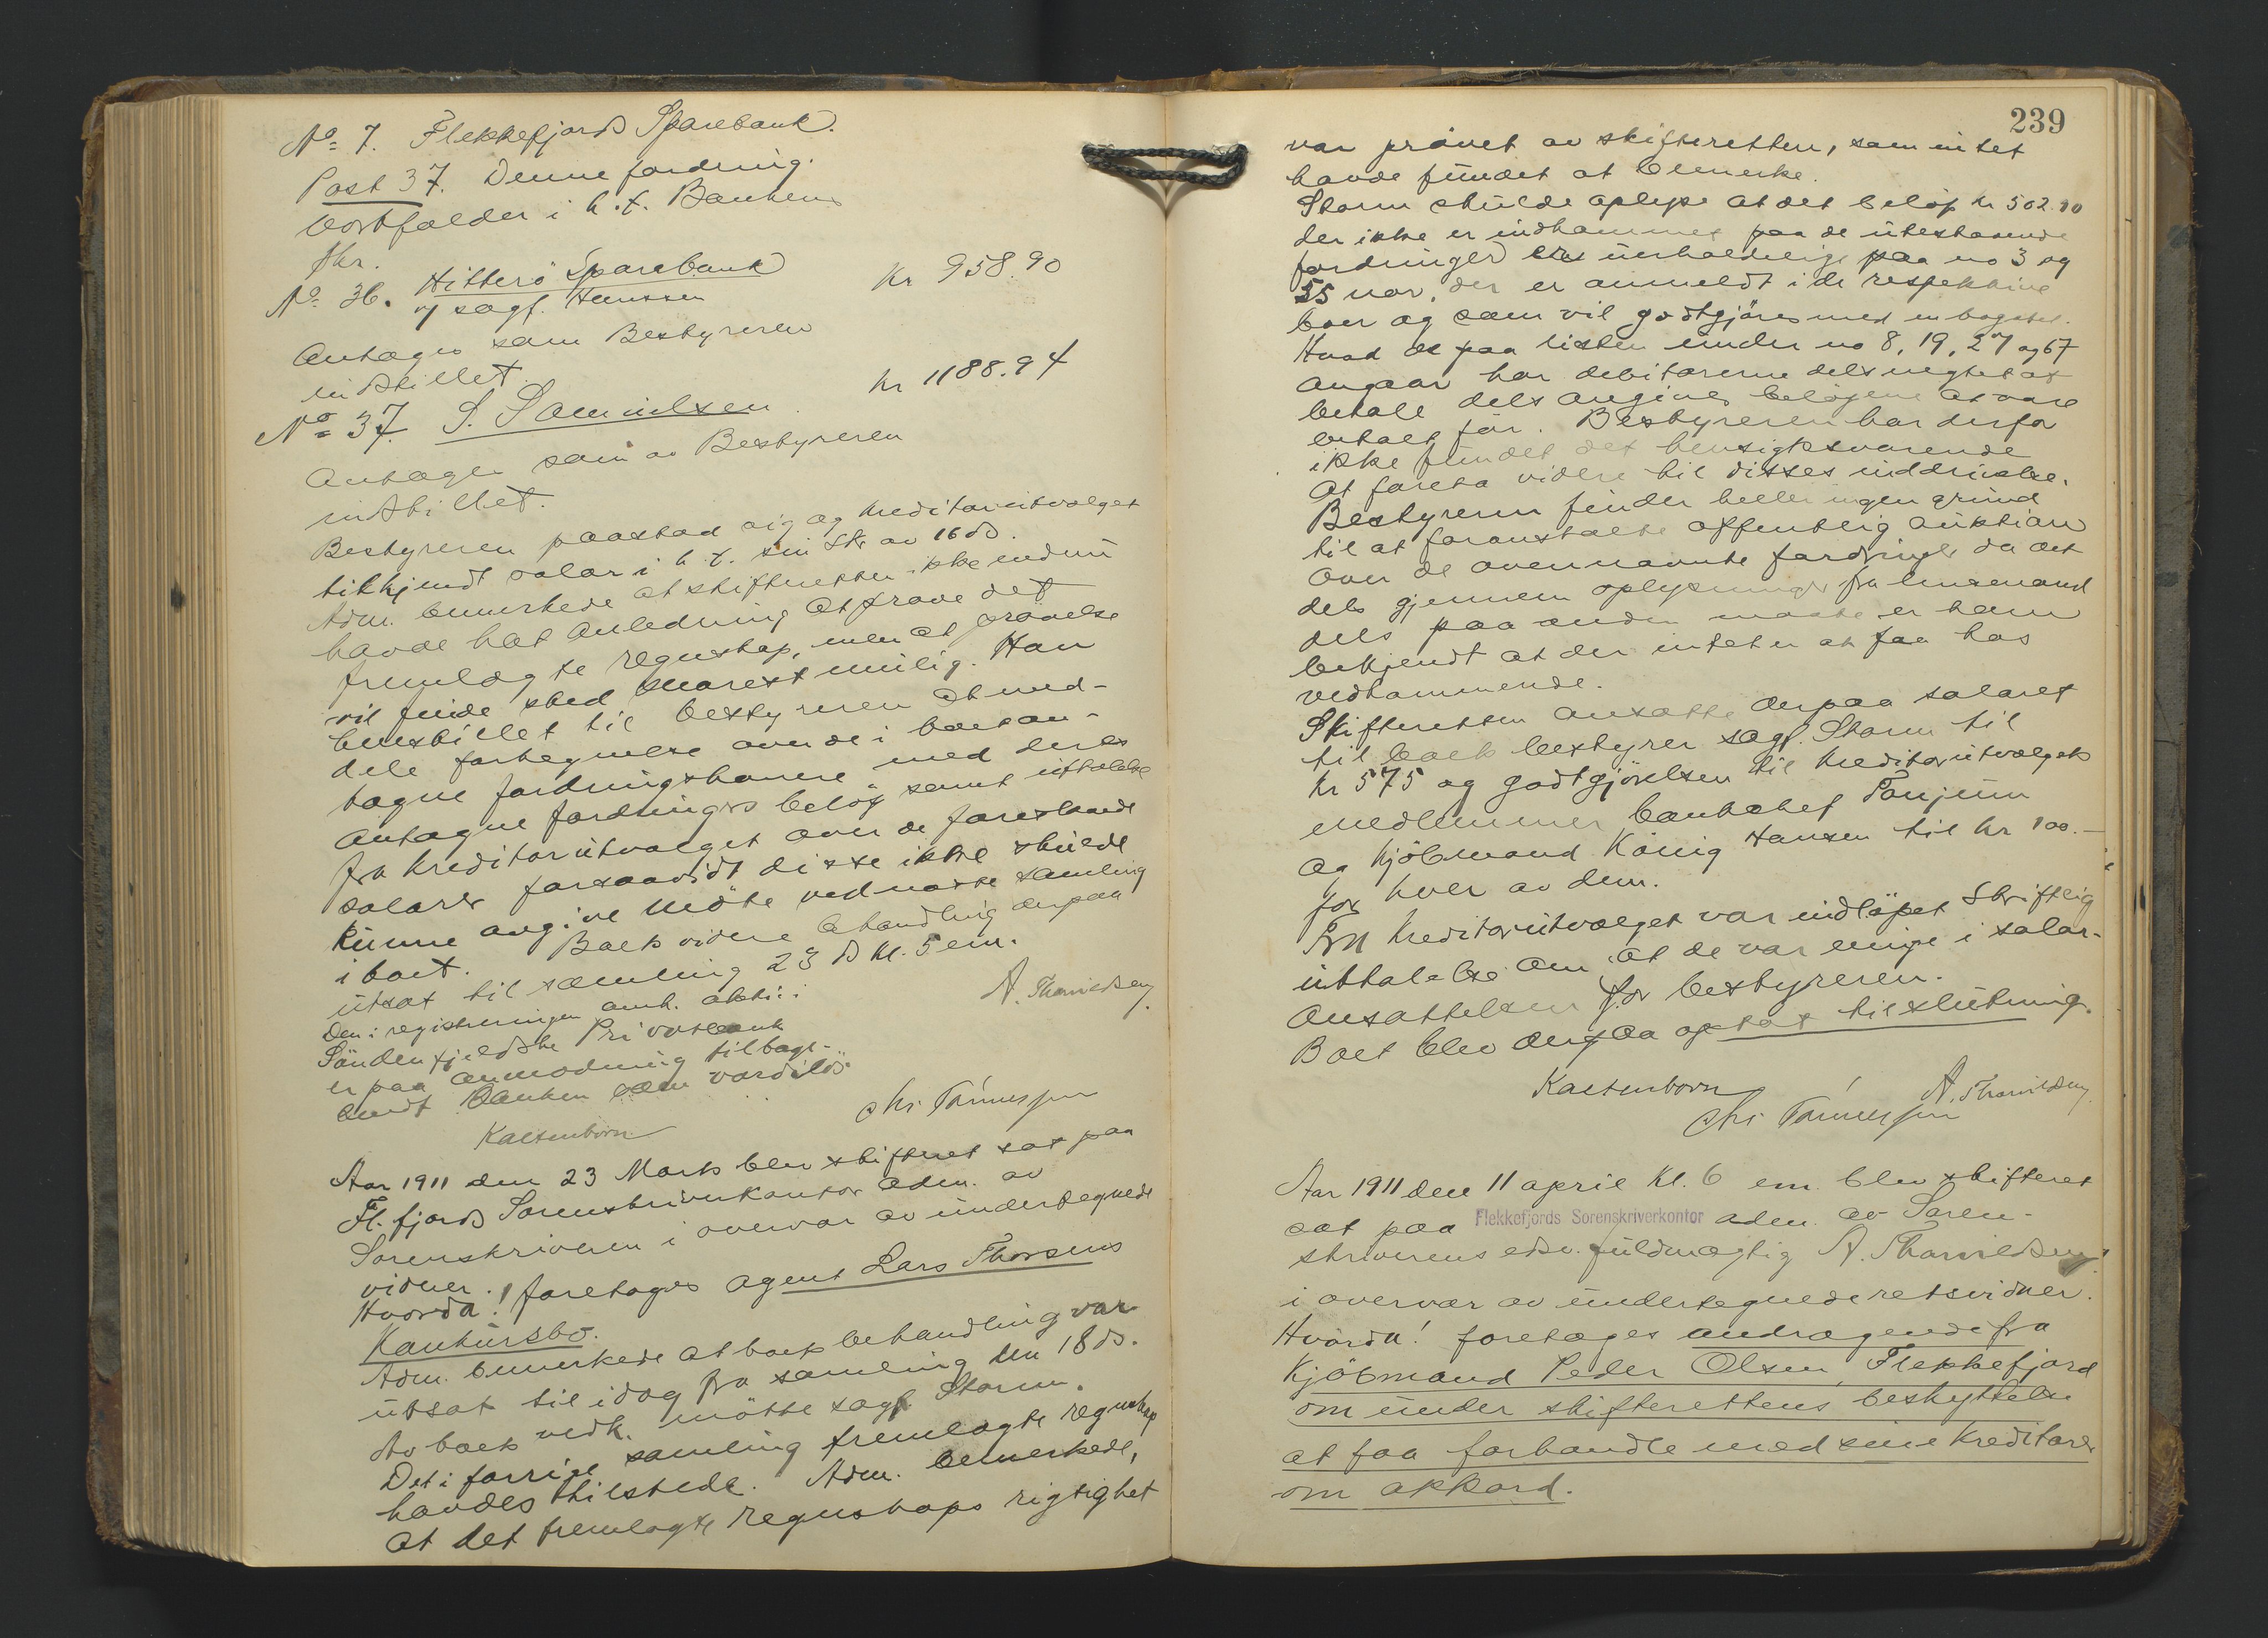 No 7. Flekkefjords Sparebank.
Post 37. Denne fordring
bortfalder i h. t. Bankens
skr.
No 36. Hitterö Sparebank
v/ sagf. Hanssen kr 958.90
Antages som Bestyreren
indstillet.
No 37. S. Samuelsen. kr 1188.94
Antages som av Bestyreren
indstillet.
Bestyreren paastod sig og kreditorutvalget
tilkjendt salar i h. t. sin skr av 16 ds.
Adm. bemerkede at skifteretten ikke endnu
havde hat anledning at prøve det
fremlagte regnskap, men at prøvelse
vil finde sted snarest mulig. Han
henstillet til bestyreren at med-
dele fortegnelse over de i boet an-
tagne fordringshavere med deres
antagne fordringers beløp samt uttalelse
fra kreditorutvalget over de forestaaende
salarer forsaavidt disse ikke skulde
kunne avgive møte ved næste samling
i boet. Boets videre behandling derpaa
utsat til samling 23 ds kl. 5 em.
Den i registreringen omh. aktie i
Søndenfjeldske Privatbank
er paa anmodning tilbage-
sendt banken som værdiløs.
A. Thorvildsen
Kaltenborn Chr Tønnessen
Aar 1911 den 23 Marts blev skifteret sat paa
Fl.fjords Sorenskriverkontor adm. av
Sorenskriveren i overvær av undertegnede
vidner.
Hvorda! foretages agent Lars Thorsens
Konkursbo.
Adm. bemerkede at boets behandling var
utsat til idag fra samling den 18 ds.
Av boets vedk. møtte sagf. Storm.
Det i forrige samling fremlagte regnskap
havdes tilstede. Adm. bemerkede,
at det fremlagte regnskaps rigtighet
239
var prøvet av skifteretten, som intet
havde fundet at bemerke.
Storm skulde oplyse at det beløp kr 502.90
der ikke er indkommet paa de utestaaende
fordringer er uerholdelige paa no 3 og
55 nær, der er anmeldt i de respektive
boer og som vil godtgjøres med en bagatel.
Hvad de paa listen under no 8, 19, 27 og 67
angaar har debitorerne dels negtet at
betale dels angives beløpene at være
betalt før. Bestyreren har derfor
ikke fundet det hensigtsvarende
at foreta videre til disses inddrivelse.
Bestyreren finder heller ingen grund
til at foranstalte offentlig auktion
over de ovennævnte fordringer da det
dels gjennem oplysninger fra lensmand
dels paa anden maate er ham
bekjendt at der intet er at faa hos
vedkommende.
Skifteretten ansatte derpaa salaret
til boets bestyrer sagf. Storm til
kr 575 og godtgjørelsen til kreditorutvalgets
medlemmer bankchef Tonjum
og kjøbmand König Hansen til kr 100.-
for hver av dem.
Fra kreditorutvalget var indløpet skriftlig
uttalelse om, at de var enige i salar-
ansættelsen for bestyreren.
Boet blev derpaa optat til slutning.
Kaltenborn A. Thorvildsen
Chr Tønnessen
Aar 1911 den 11 april kl. 6 em blev skifteret
sat paa Flekkefjords Sorenskriverkontor adm. av Soren-
skriverens edsv. fuldmægtig A. Thorvildsen
i overvær av undertegnede retsvidner.
Hvorda! foretages andragende fra
Kjöbmand Peder Olsen, Flekkefjord
om under skifterettens beskyttelse
at faa forhandle med sine kreditorer
om akkord.